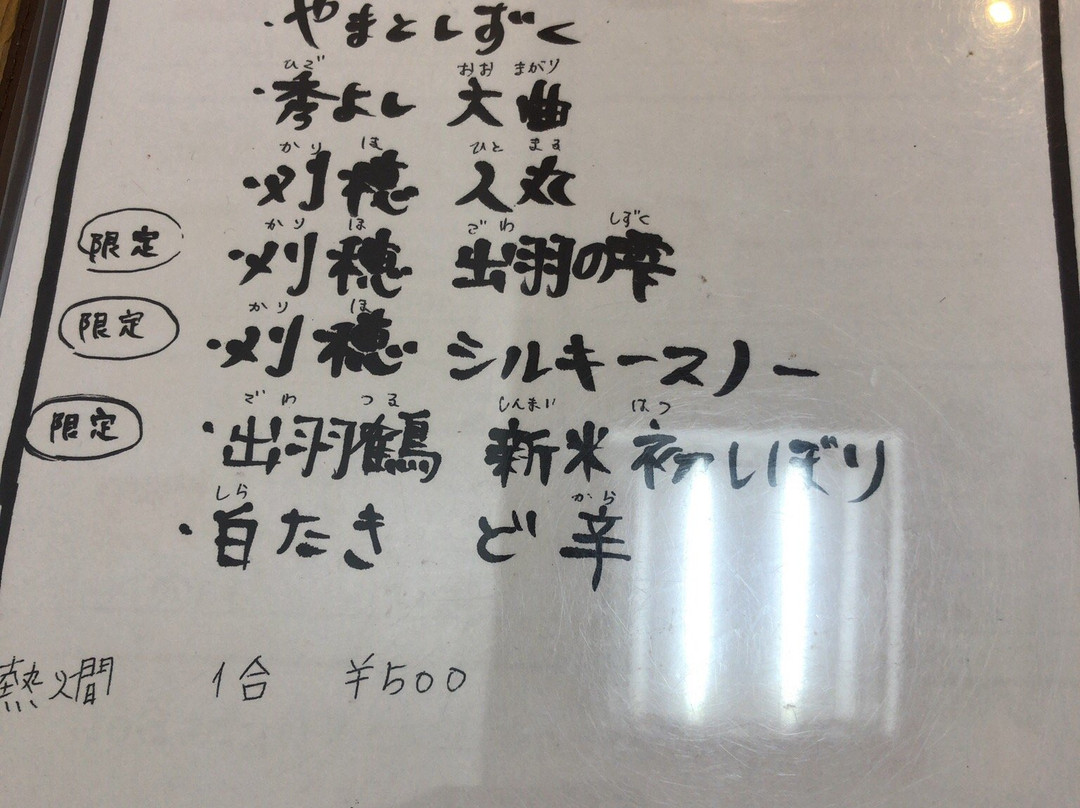 ・やまとしずく
ひで おお まがり
・秀よし 大曲
かり ほ ひと まる
・刈穂 人丸
かり ほ でわ しずく
限定 ・刈穂 出羽の雫
かり ほ
限定 ・刈穂 シルキースノー
でわ つる しんまい はつ
限定 ・出羽鶴 新米 初しぼり
しら から
・白たき ど辛
熱燗 1合 ¥500